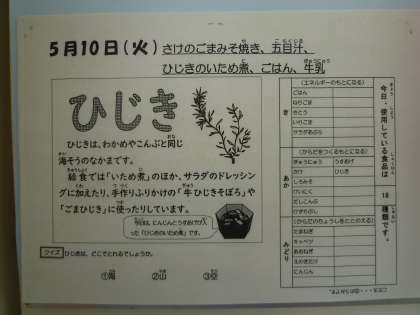 5月10日(火) さけのごまみそ焼き、五目汁、
ひじきのいため煮、ごはん、牛乳
ひじき
ひじきは、わかめやこんぶと同じ
海そうのなかまです。
給食では「いため煮」のほか、サラダのドレッシン
グに加えたり、手作りふりかけの「牛ひじきそぼろ」や
「ごまひじき」に使ったりしています。
今日は、にんじんとうすあげが入
った「ひじきのいため煮」です。
クイズ ひじきは、どこでとれるでしょうか。
①海 ②山 ③空
今日、使用している食品は
18
種類です。
き
(エネルギーのもとになる)
ごはん
ねりごま
さとう
いりごま
サラダあぶら
あか
(からだをつくるもとになる)
ぎゅうにゅう うすあげ
さけ ひじき
しろみそ
けいにく
だしこんぶ
けずりぶし
みどり
(からだのちょうしをととのえる)
たまねぎ
キャベツ
あおねぎ
えのきだけ
にんじん